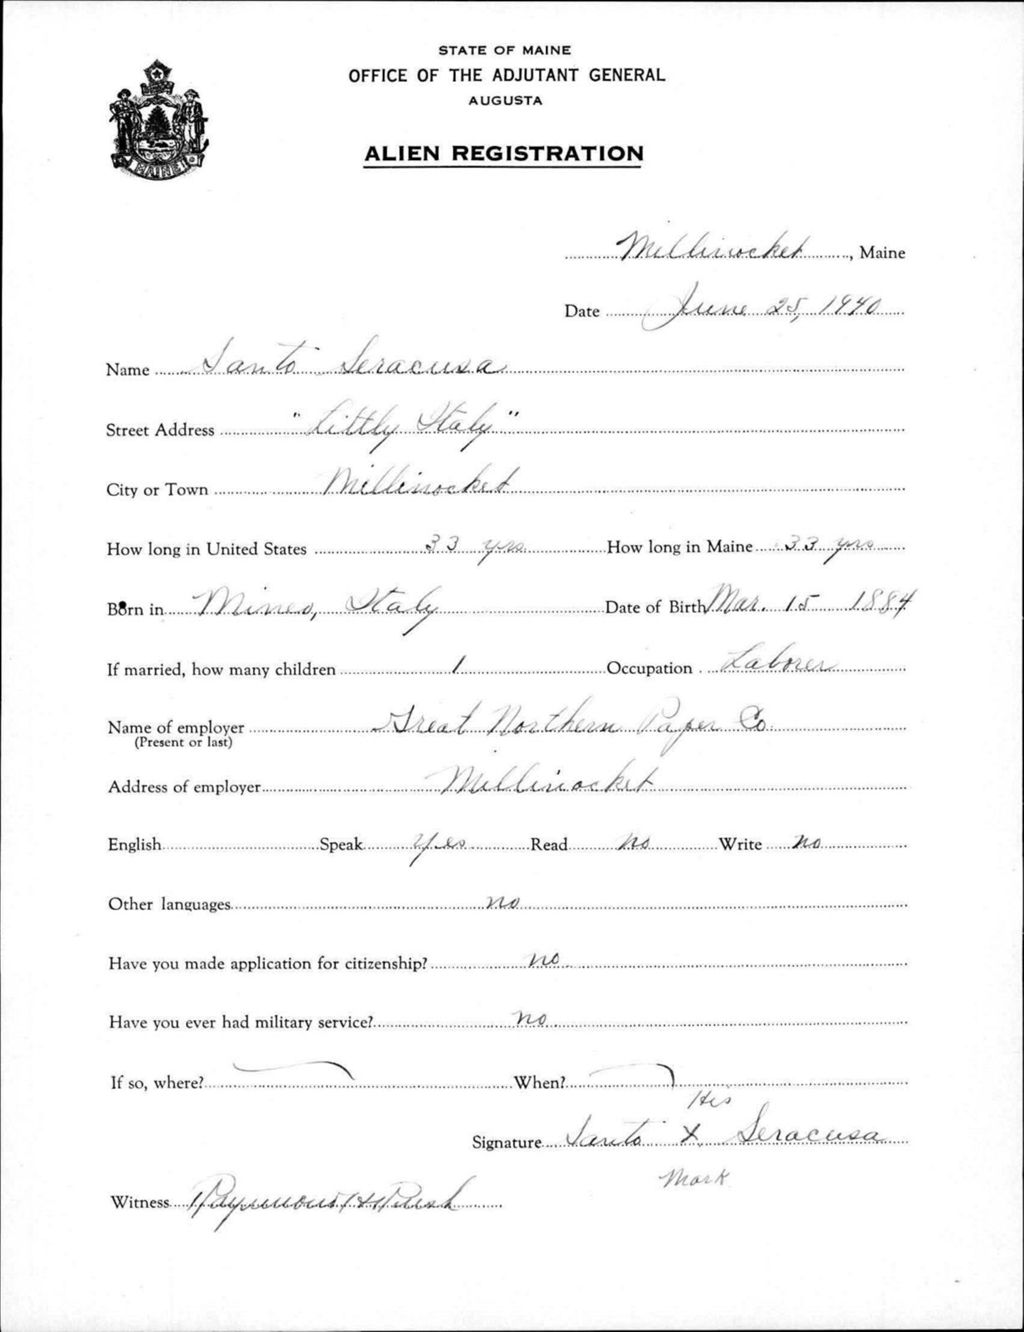 STATE OF MAINE
OFFICE OF THE ADJUTANT GENERAL
AUGUSTA
ALIEN REGISTRATION
MAINE
Millinocket, Maine
Date June 25, 1940
Name Santo Seracusa
Street Address "Littly Italy"
City or Town Millinocket
How long in United States 33 yrs How long in Maine 33 yrs
Born in Mineo, Italy Date of Birth Mar. 15 1884
If married, how many children 1 Occupation Laborer
Name of employer Great Northern Paper Co.
(Present or last)
Address of employer Millinocket
English Speak yes Read no Write no
Other languages no
Have you made application for citizenship? no
Have you ever had military service? no
If so, where? When?
His
Signature Santo X Seracusa
Mark
Witness Raymond H